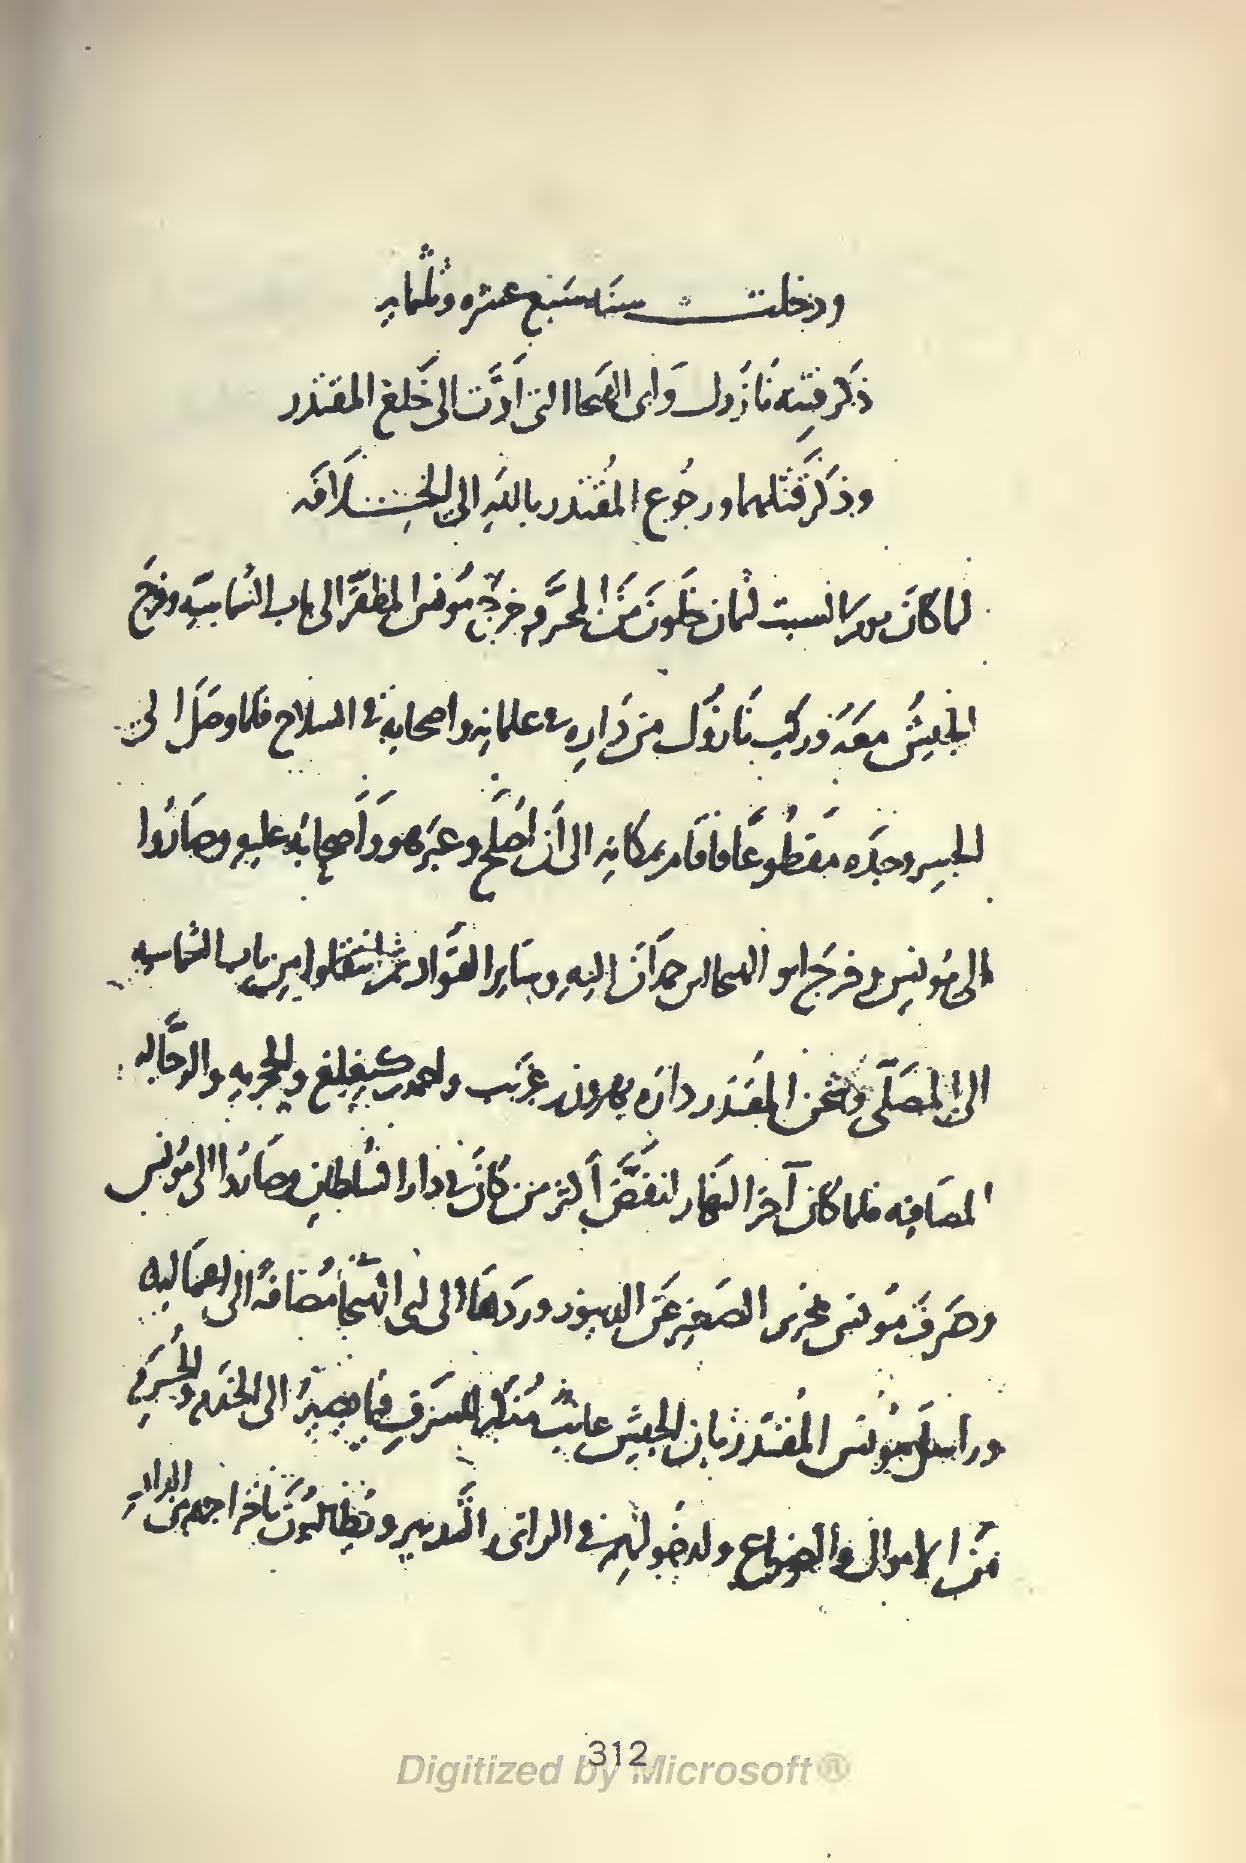 ودخلت سنة سبع عشرة وثلثماية
ذكر فتنة نازوك وابى الهيجا التى ادت الى خلع المقتدر
وذكر قتلهما ورجوع المقتدر بالله الى الخلافة
لما كان يوم السبت لثمان خلون من المحرم خرج مونس المظفر الى باب الشماسية وخرج
الجيش معه وركب نازوك من داره فى غلمانه واصحابه فى السلاح فلما وصل الى
الجسر وجده مقطوعا فاقام بمكانه الى ان اصلح وعبر هو واصحابه عليه وصاروا
الى مونس وخرج ابو الهيجا بن حمدان اليه وساير القواد ثم انتقلوا من باب الشماسية
الى المصلى وشحن المقتدر داره بهرون بن غريب واحمد بن كيغلغ والحجرية والرجالة
المصافية فلما كان آخر النهار انفض اكثر من كان فى دار السلطان وصاروا الى مونس
وصرف مونس نحرير الصغير عن الدينور وردها الى ابى الهيجا مضافة الى اعماليه
وراسل مونس المقتدر بان الجيش عاتب منكر للسرف فيما يصير الى الخدم والحرم
من الاموال والضياع ولدخولهم فى الراى والتدبير ويطالبون باخراجهم من الدار
312
Digitized by Microsoft®